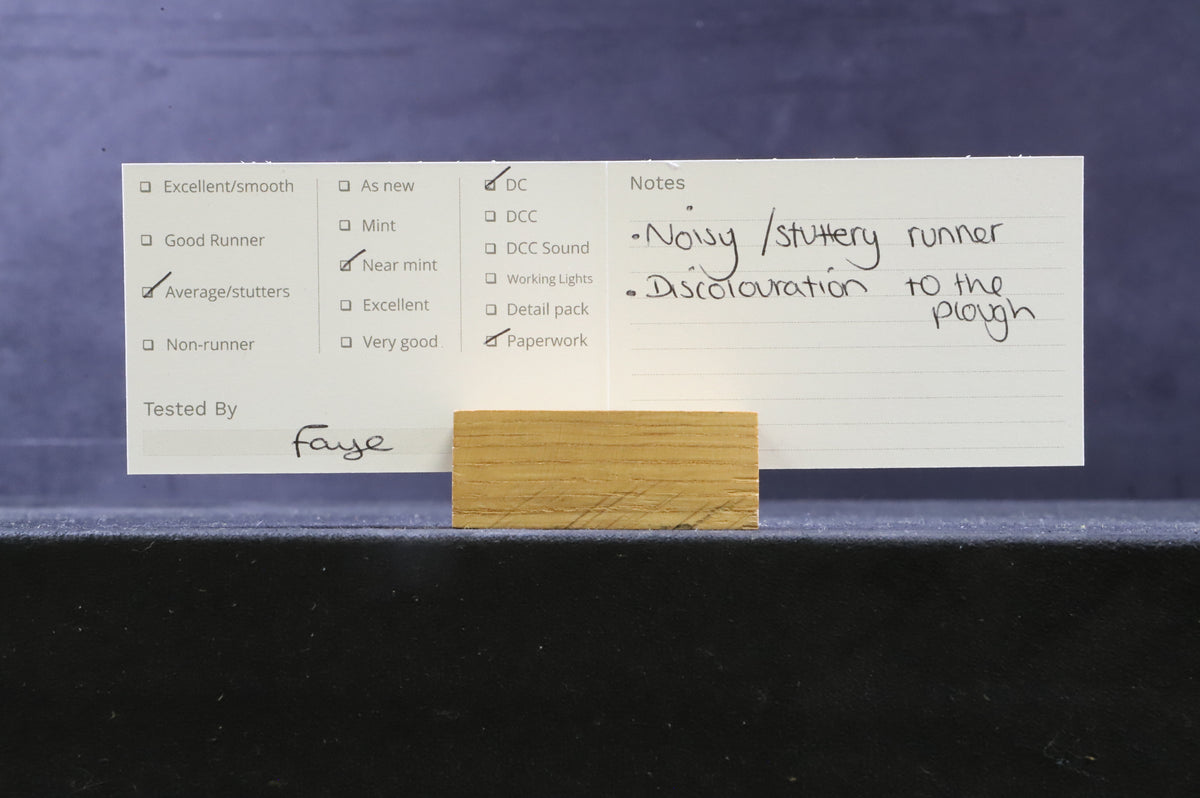 Excellent/smooth
Good Runner
Average/stutters
Non-runner
As new
Mint
Near mint
Excellent
Very good
DC
DCC
DCC Sound
Working Lights
Detail pack
Paperwork
Tested By
Faye
Notes
• Noisy /stuttery runner
• Discolouration to the
plough